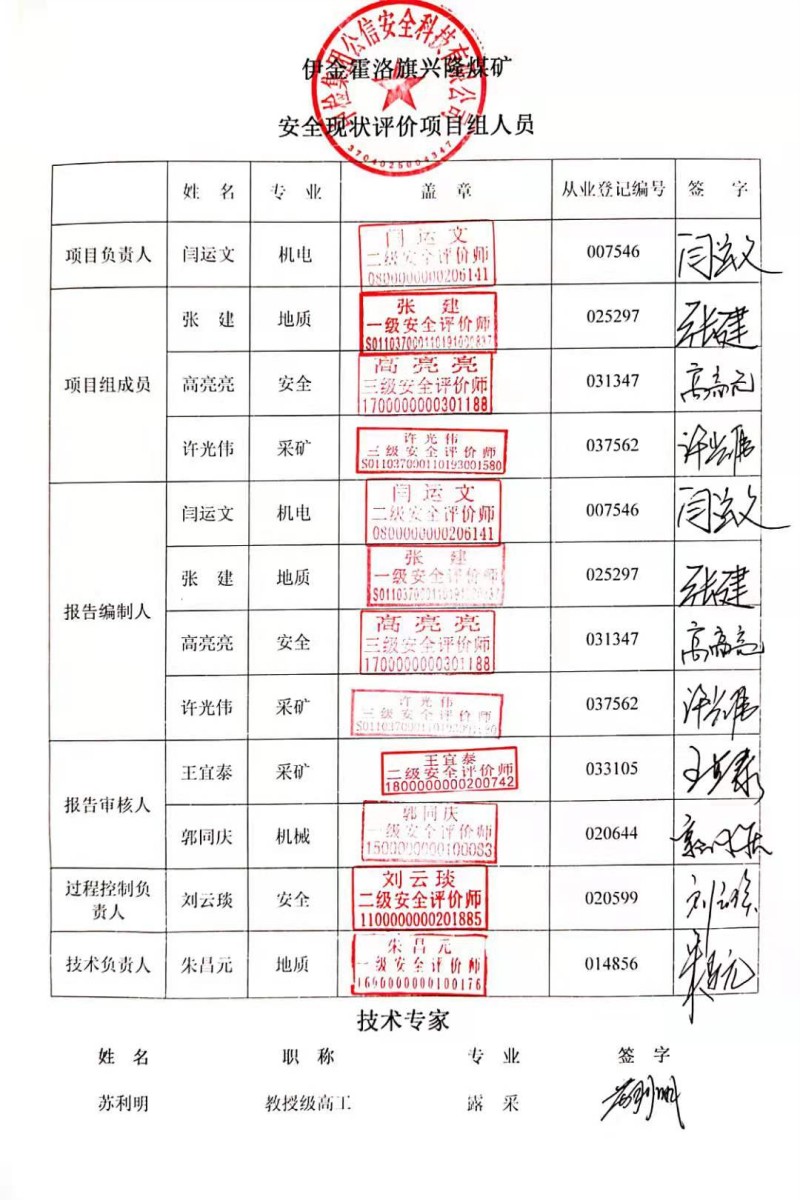 伊金霍洛旗兴隆煤矿
集团公信安全科技有限公司
3704025004347
安全现状评价项目组人员
姓 名 专 业 盖 章 从业登记编号 签 字
项目负责人 闫运文 机电 007546 闫运文
闫运文
二级安全评价师
0800000000206141
项目组成员
张 建 地质 025297 张建
张 建
一级安全评价师
S011037000110191000837
高亮亮 安全 031347 高亮亮
高亮亮
三级安全评价师
1700000000301188
许光伟 采矿 037562 许光伟
许光伟
三级安全评价师
S011037000110193001580
报告编制人
闫运文 机电 007546 闫运文
闫运文
二级安全评价师
0800000000206141
张 建 地质 025297 张建
张 建
一级安全评价师
高亮亮 安全 031347 高亮亮
高亮亮
三级安全评价师
1700000000301188
许光伟 采矿 037562 许光伟
许光伟
三级安全评价师
报告审核人
王宜泰 采矿 033105 王宜泰
王宜泰
二级安全评价师
1800000000200742
郭同庆 机械 020644 郭同庆
郭同庆
一级安全评价师
1500000000100083
过程控制负
责人
刘云琰 安全 020599 刘云琰
刘云琰
二级安全评价师
1100000000201885
技术负责人 朱昌元 地质 014856 朱昌元
朱昌元
一级安全评价师
1600000000100176
技术专家
姓 名 职 称 专 业 签 字
苏利明 教授级高工 露 采 苏利明